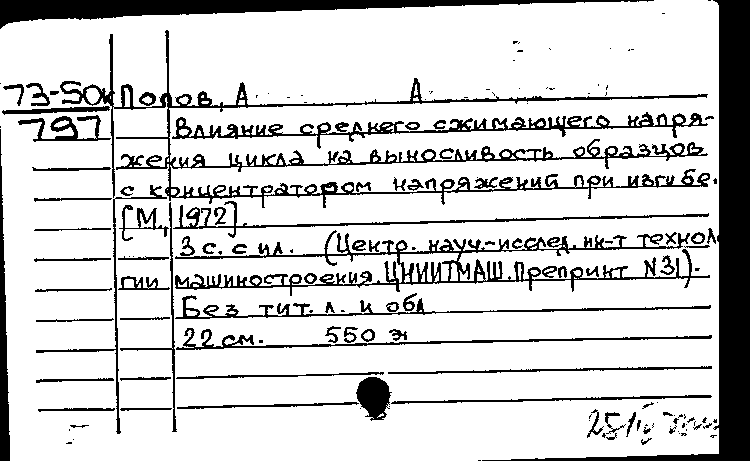 73-50к Попов, А А
797 Влияние среднего сжимающего напря-
жения цикла на выносливость образцов
с концентратором напряжений при изгибе.
[М., 1972].
3 с. с ил. (Центр. науч.-исслед. ин-т техноло
гии машиностроения. ЦНИИТМАШ. Препринт N31).
Без тит. л. и обл
22 см. 550 э